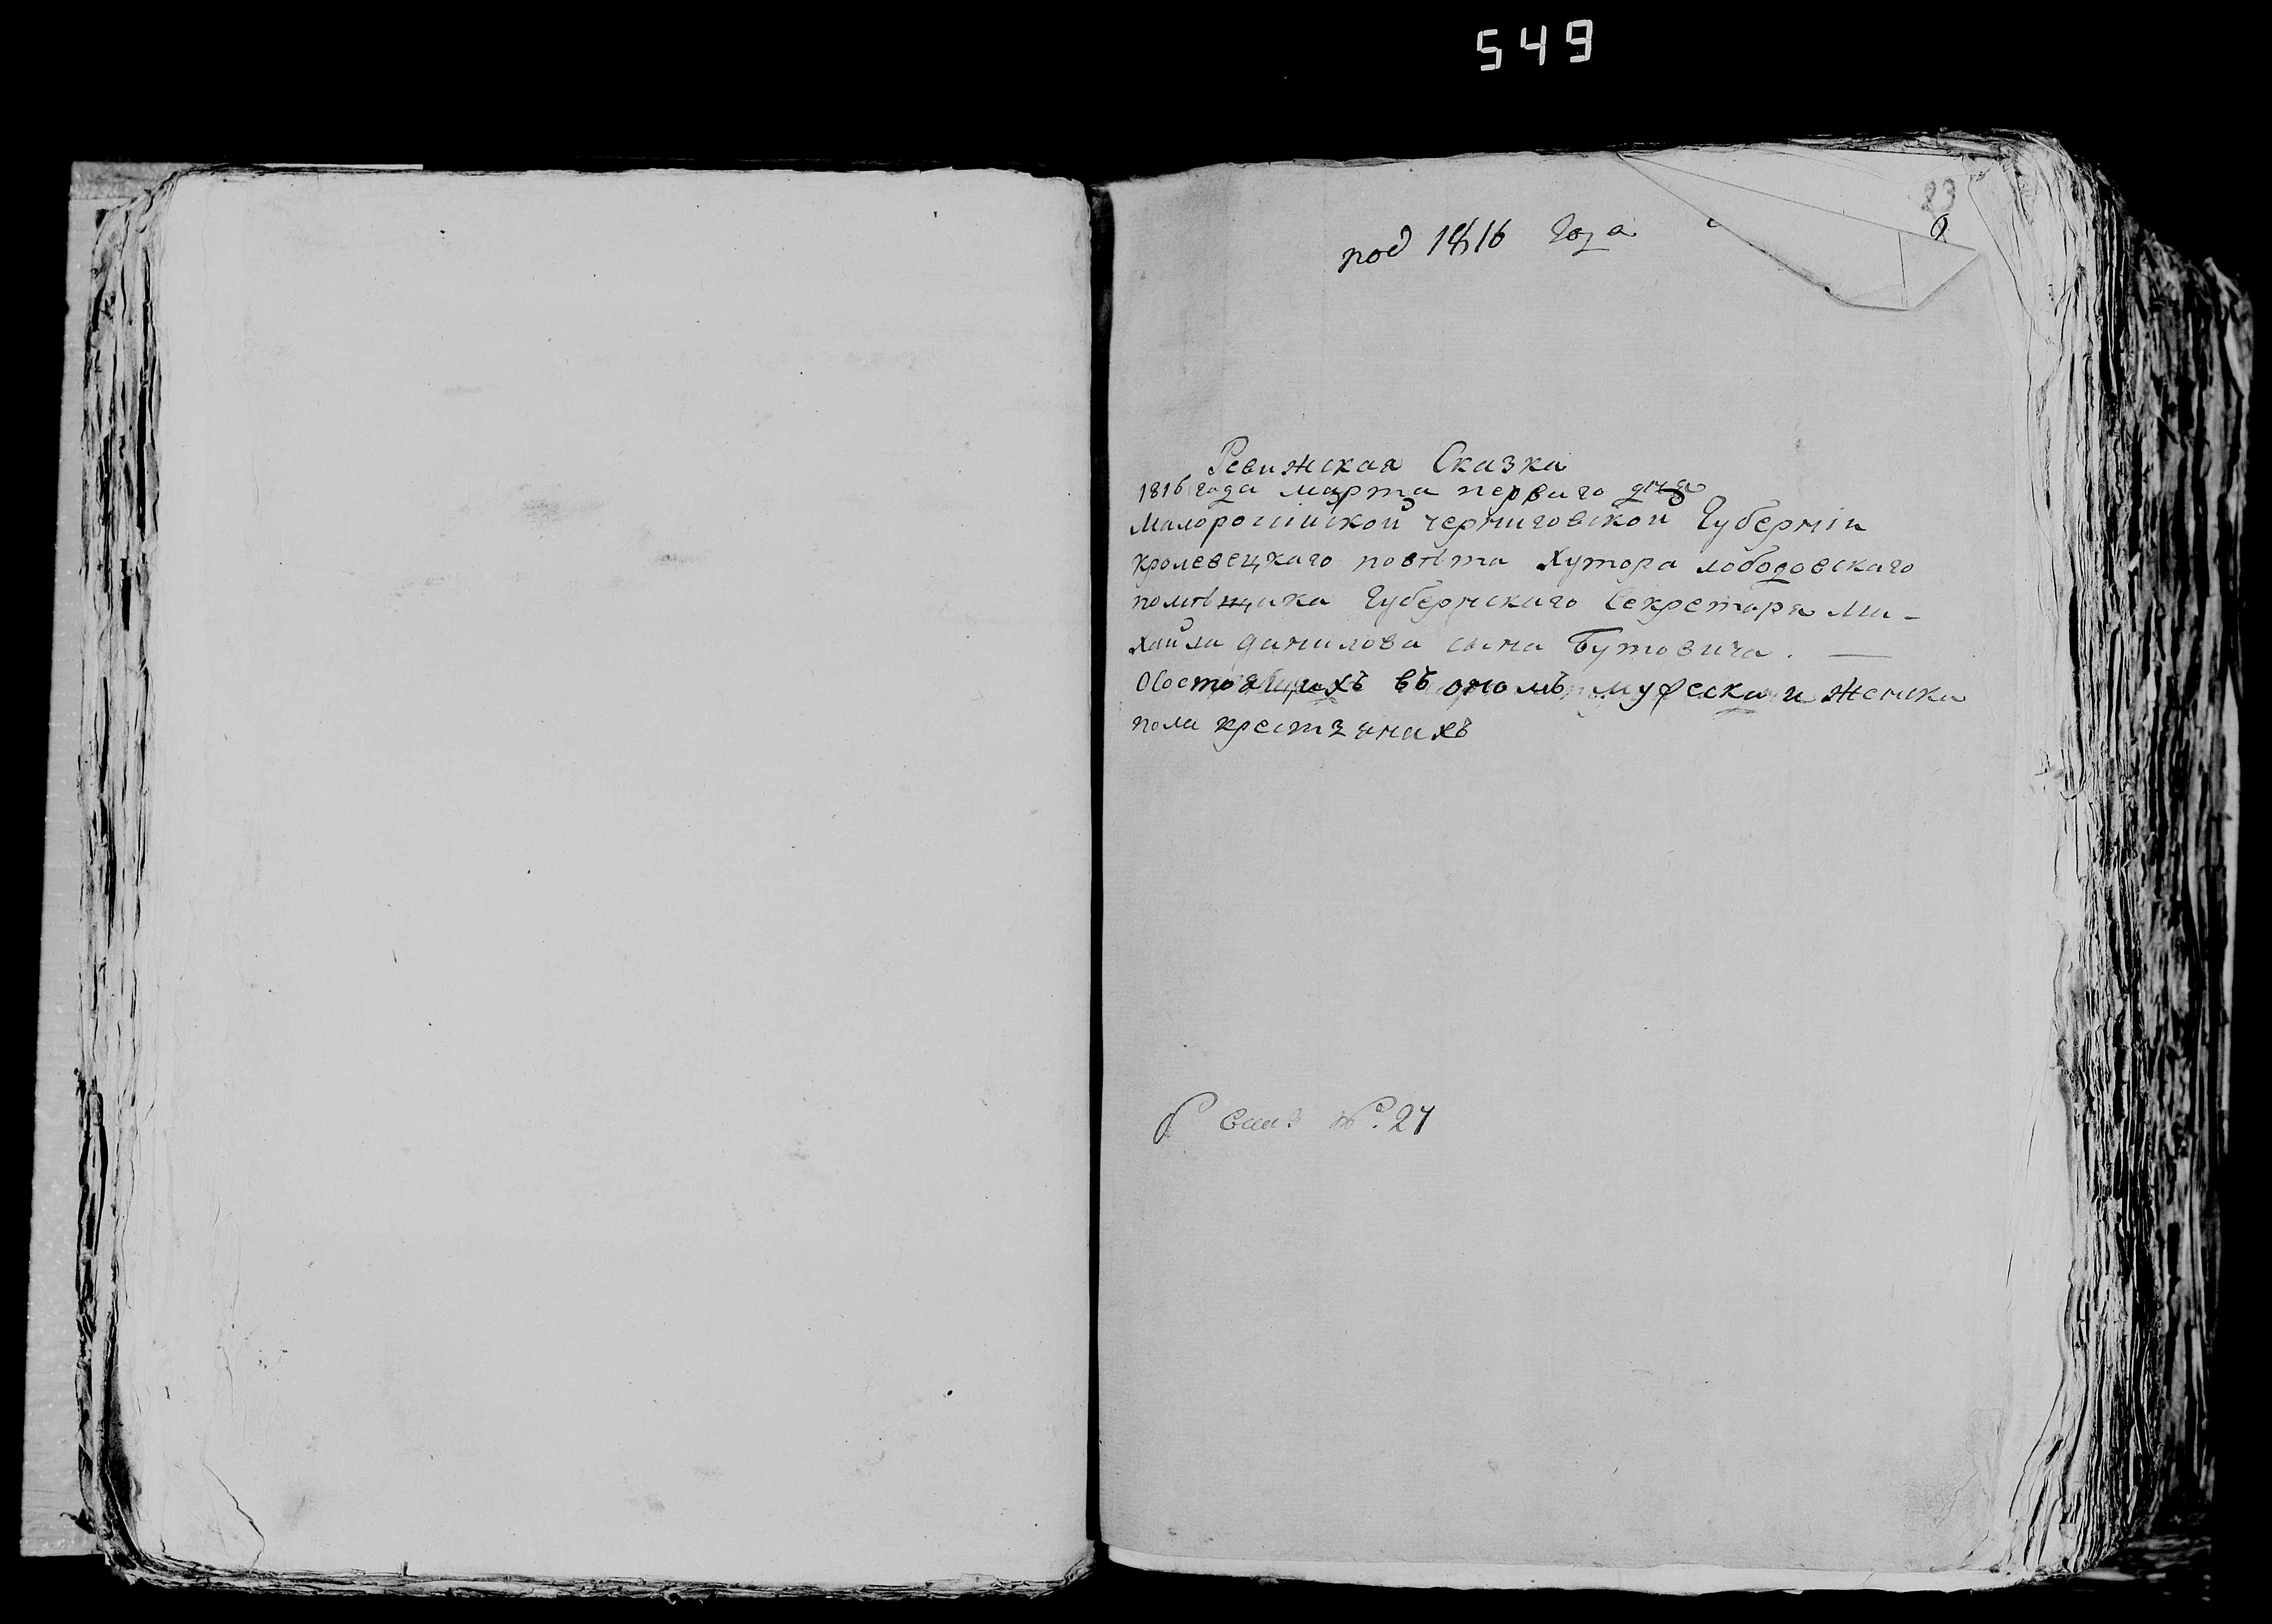 549
23
под 1816 года
Ревижская Сказка
1816 года марта перваго дня
Малоросiйской черниговской Губернiи
кролевецкаго повѣта хутора лободовскаго
помѣщика Губернскаго Секретаря Ми-
хайла данилова сына Бутовича. —
О состоящихъ въ ономъ мужеска и женска
пола крестянахъ
№. 27